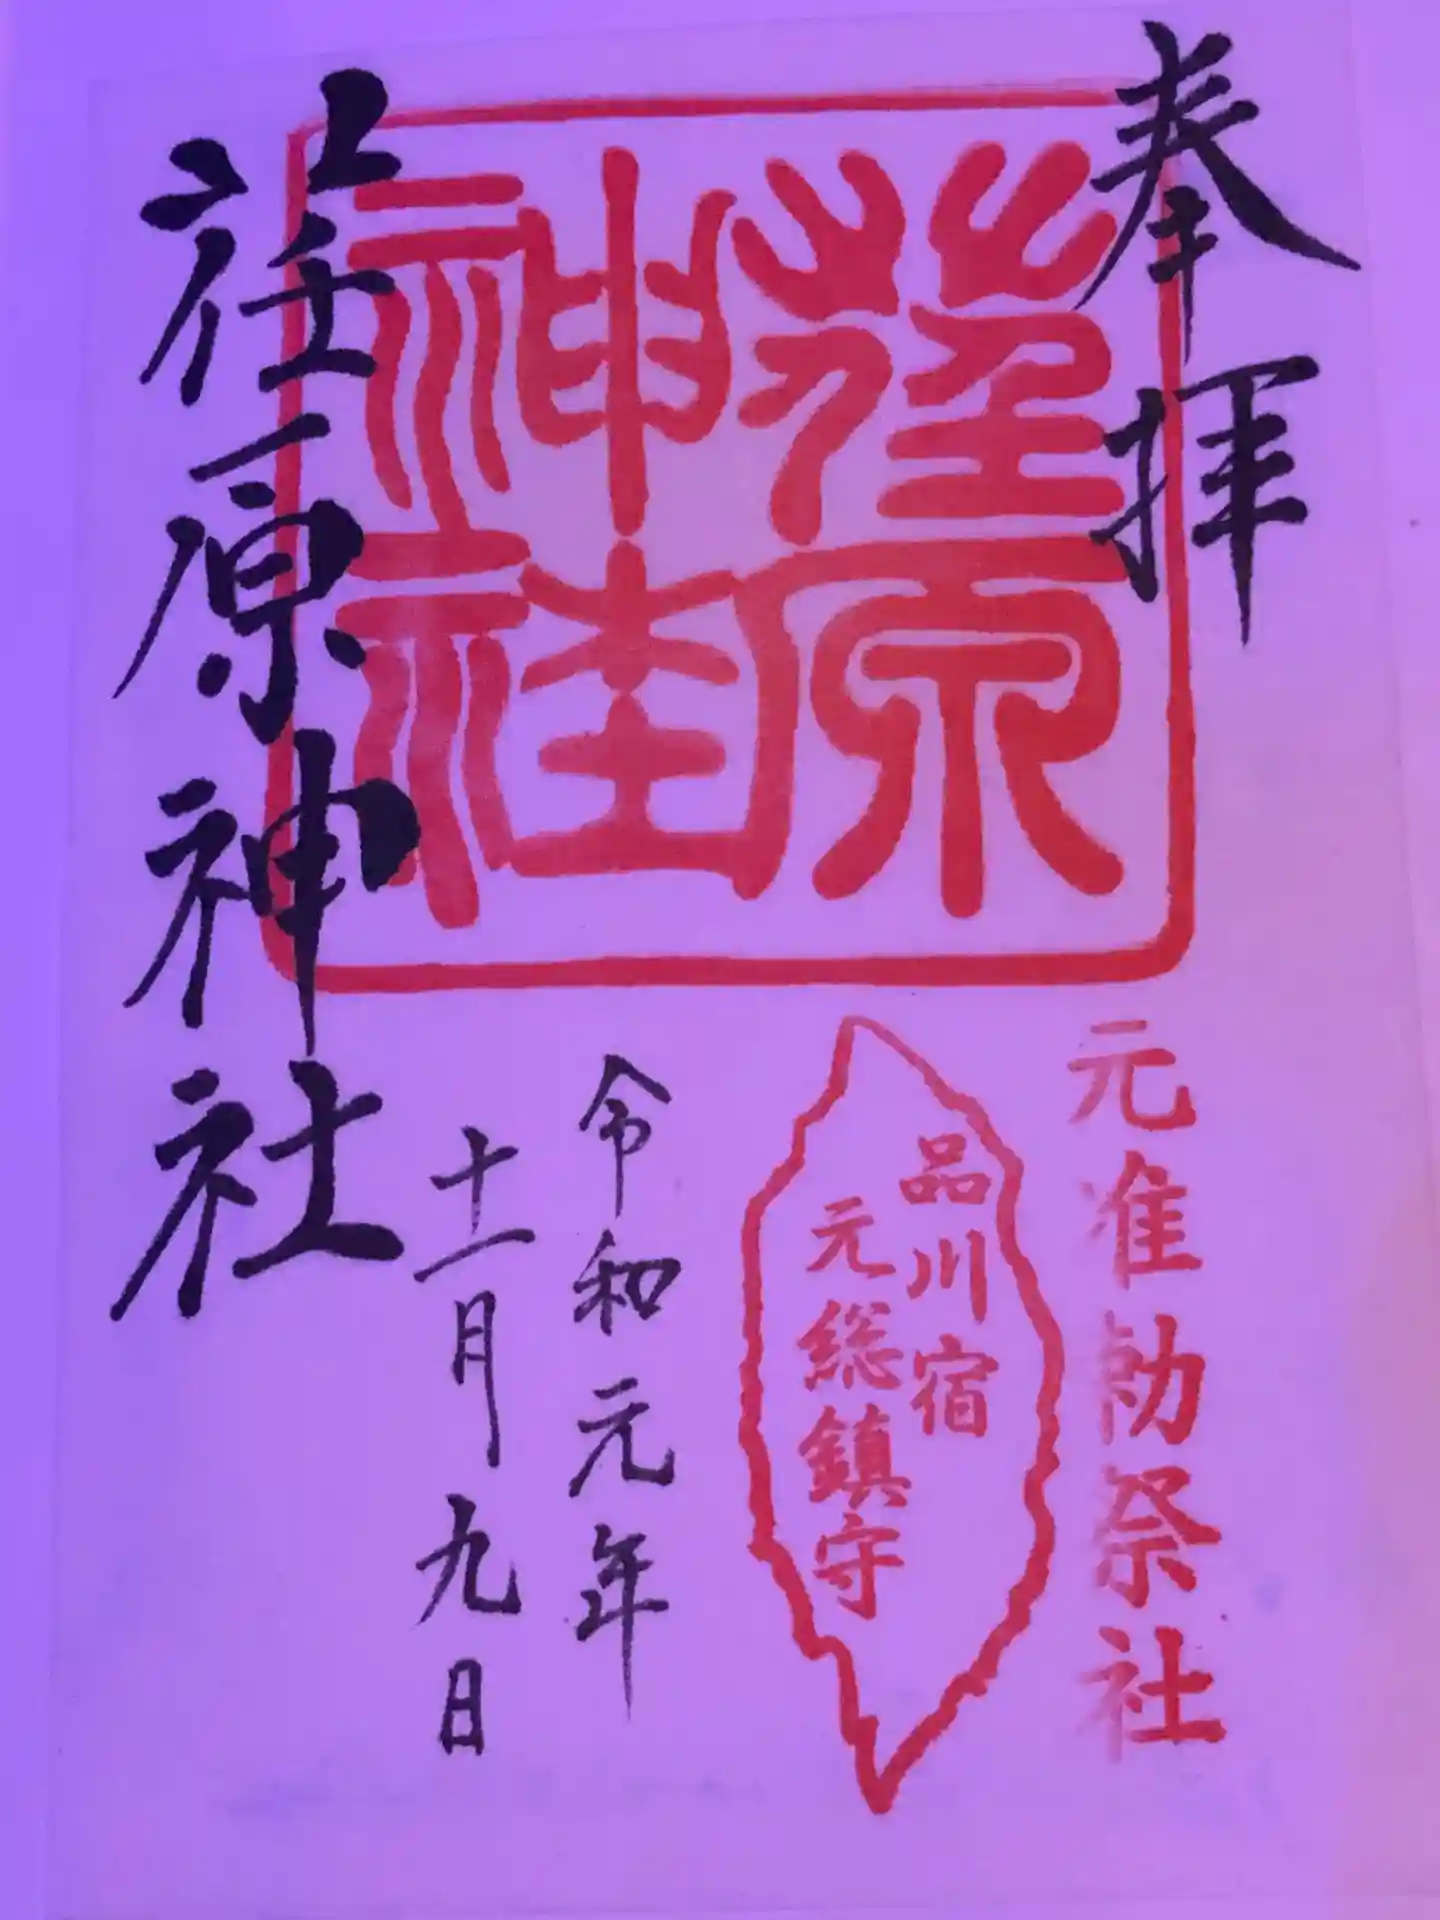 奉拝
荏原
神社
元准勅祭社
品川宿
元総鎮守
令和元年
十一月九日
荏原神社